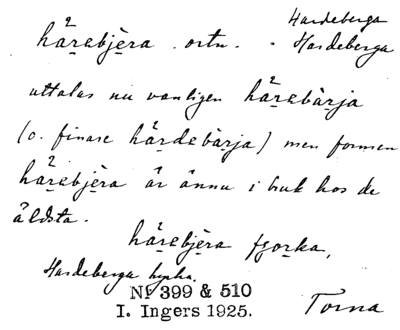 Hardeberga
hårebjèra ortn. - Hardeberga
uttalas nu vanligen hårebàrja
(o. finare hårdebàrja) men formen
hårebjèra är ännu i bruk hos de
äldsta.
hårebjèra
Hardeberga kyrka.
No 399 & 510
I. Ingers 1925.
Torna